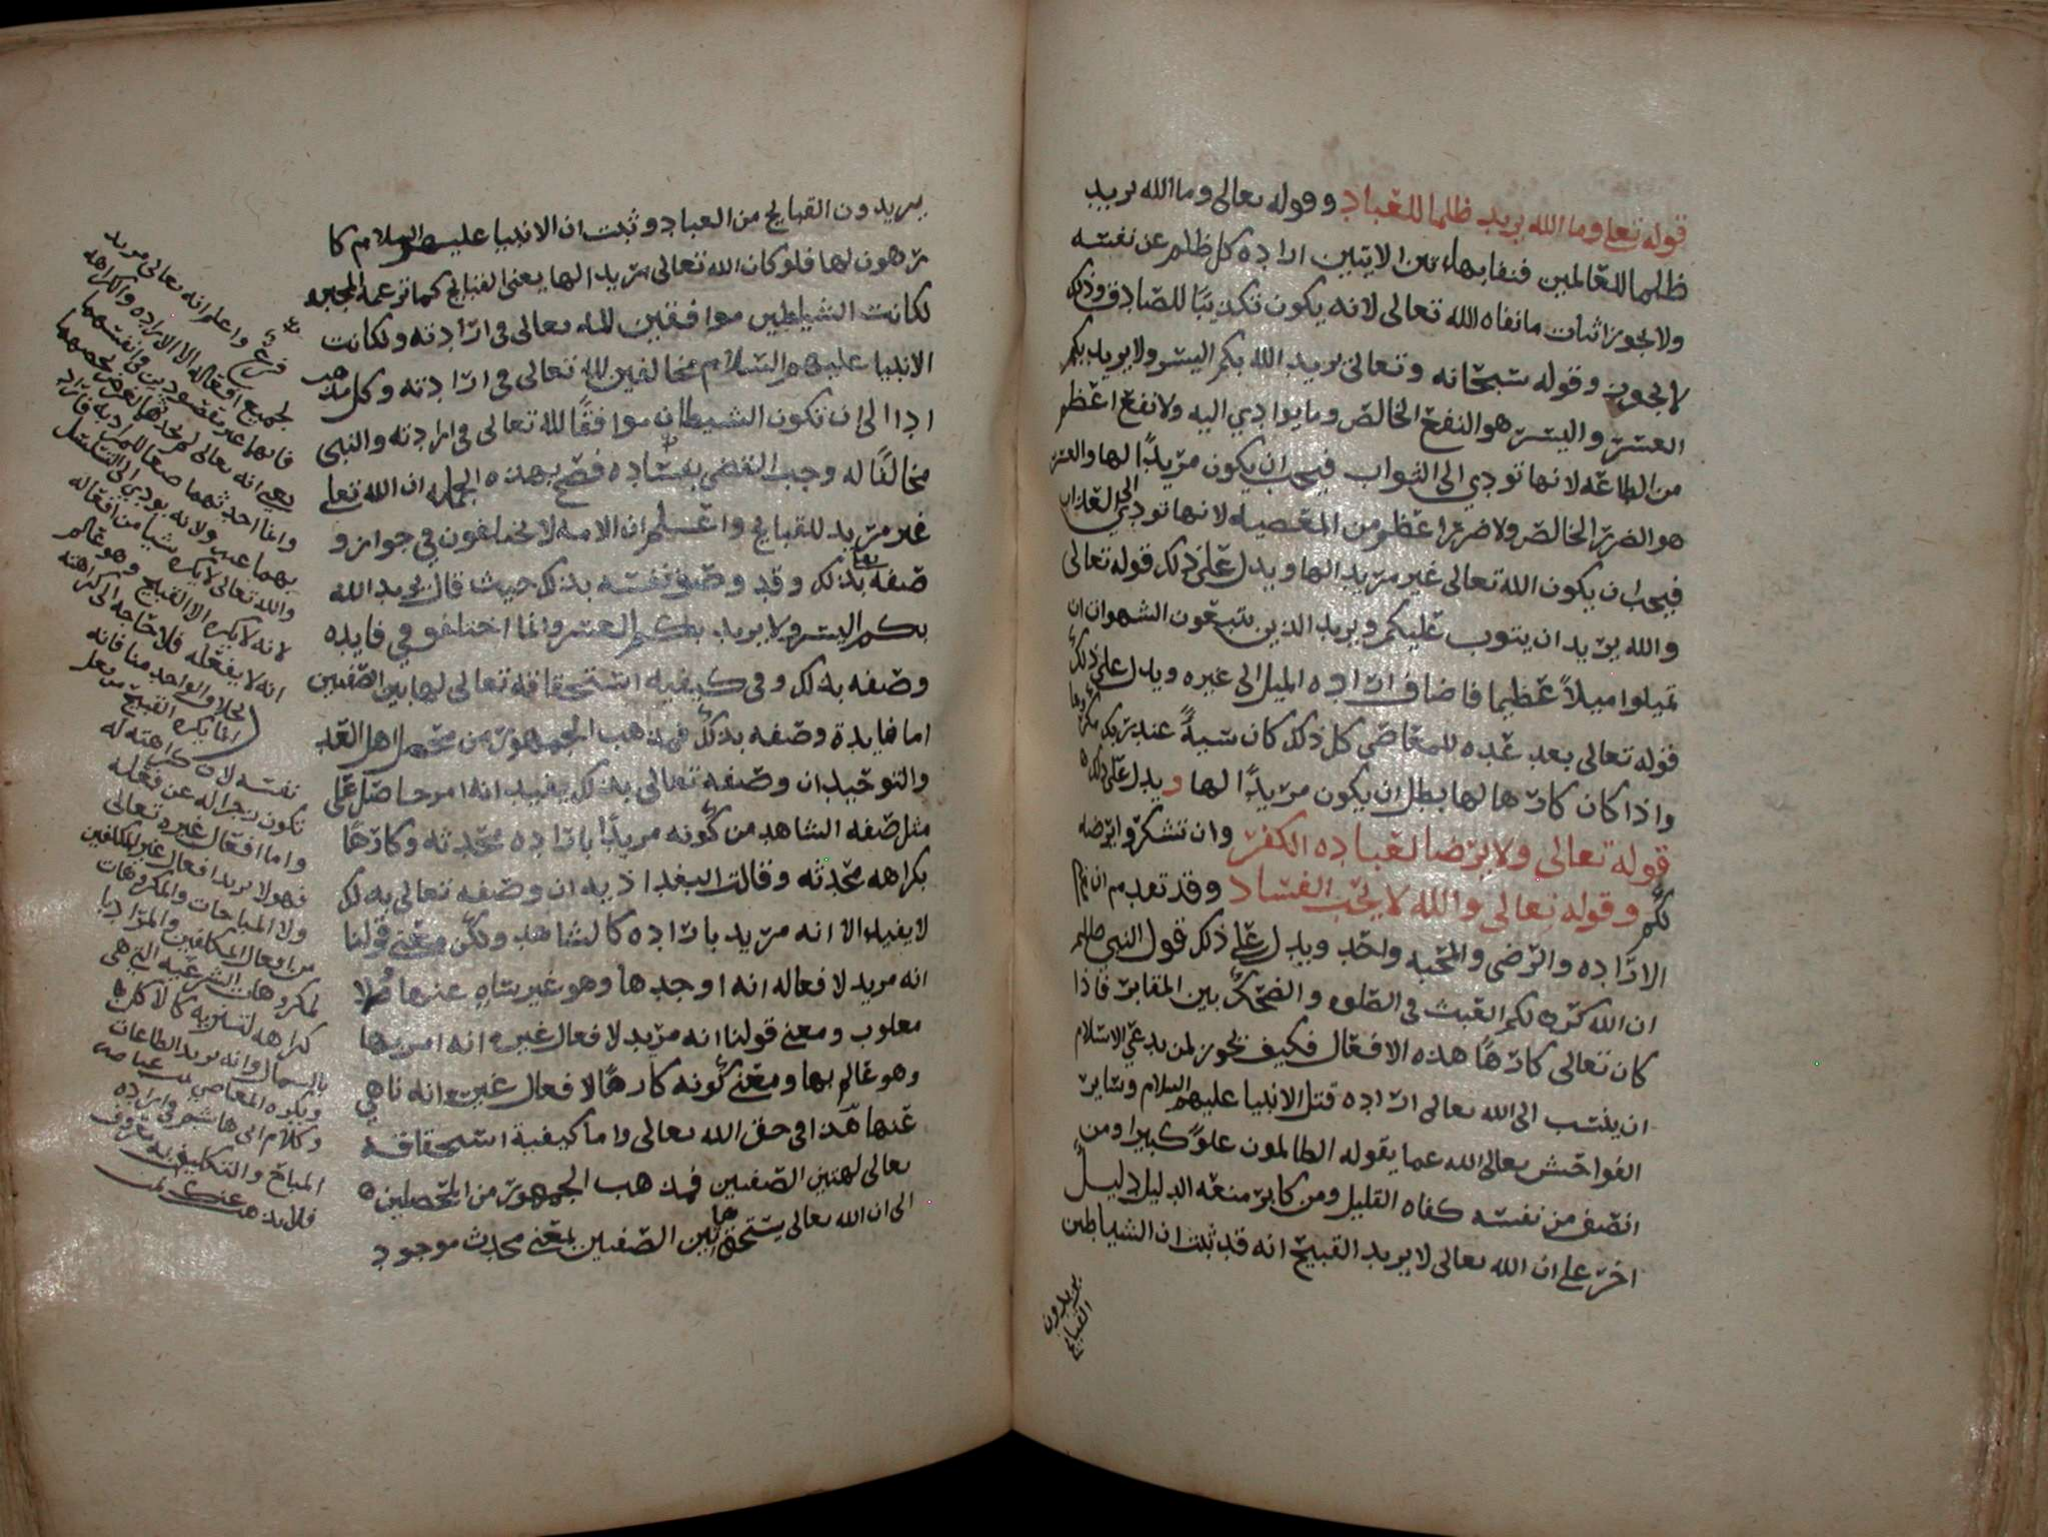 قوله تعلى وما الله يريد ظلما للعباد وقوله تعالى وما الله يريد
ظلما للعالمين فنفا بهاتين الايتين ارادة كل ظلم عن نفسه
ولا يجوز اثبات ما نفاه الله تعالى لانه يكون تكذيبًا للصادق وذلك
لا يجوز وقوله سبحانه وتعالى يريد الله بكم اليسر ولا يريد بكم
العسر واليسر هو النفع الخالص وما يوادي اليه ولا نفع اعظم
من الطاعه لانها تودي الى الثواب فيجب ان يكون مريدًا لها والعسر
هو الضرر الخالص ولا ضررا عظم من المعصيه لانها تودي الى العذاب
فيجب ان يكون الله تعالى غير مريد الها ويدل على ذلك قوله تعالى
والله يريد ان يتوب عليكم ويريد الذين يتبعون الشهوات ان
تميلوا ميلاً عظيما فاضاف ارادة الميل الى غيره ويدل على ذلك
قوله تعالى بعد عده للمعاصي كل ذلك كان سيةً عند ربك مكروها
واذا كان كارها لها بطل ان يكون مريدًا لها ويدل على ذلك
قوله تعالى ولا يرضا لعباده الكفر وان تشكروا يرضه
لكم وقوله تعالى والله لا يحب الفساد وقد تقدم ان
الاراده والرضى والمحبه واحد ويدل على ذلك قول النبي صلعم
ان الله كره لكم العبث في الصلوه والضحك بين المقابر فاذا
كان تعالى كارهًا هذه الافعال فكيف يجوز لمن يدعي الاسلام
ان ينسب الى الله تعالى ارادة قتل الانبيا عليهم السلام وساير
الفواحش تعالى الله عما يقوله الظالمون علوًا كبيرا ومن
انصف من نفسه كفاه القليل ومن كابر منعه الدليل دليلٌ
اخر على ان الله تعالى لا يريد القبيح انه قد ثبت ان الشياطين
يريدون
القبايح
يريدون القبايح من العباد وثبت ان الانبيا عليهم السلام كا
رهون لها فلو كان الله تعالى مريد الها يعني القبايح كما تزعمه المجبره
لكانت الشياطين موافقين لله تعالى في ارادته ولكانت
الانبيا عليهم السلام مخالفين لله تعالى في ارادته وكل مذهب
ادا الى ان تكون الشيطان موافقًا لله تعالى في ارادته والنبي
مخالفًا له وجب القضى بفساده فصح بهذه الجمله ان الله تعلى
غير مريد للقبايح واعلم ان الامه لا يختلفون في جواز و
صفه تعا بذلك وقد وصف نفسه بذلك حيث قال يريد الله
بكم اليسر ولا يريد بكم العسر وانما اختلفو في فايده
وصفه بذلك وفي كيفيه استحقاقه تعالى لهاتين الصفتين
اما فايدة وصفه بذلك فمذهب الجمهور من محصل اهل العدل
والتوحيد ان وصفه تعالى بذلك يفيد انه امر حاصل على
مثل صفه الشاهد من كونه مريدًا بارادة محدثه وكارهًا
بكراهه محدثه وقالت البغداذيه ان وصفه تعالى بذلك
لا يفيد الا انه مريد بارادة كالشاهد ولكن معنى قولنا
انه مريد لافعاله انه اوجدها وهو غير ساهٍ عنها ولا
مغلوب ومعنى قولنا انه مريد لافعال غيره انه امر بها
وهو عالم بها ومعنى كونه كارهًا لافعال غيره انه ناهي
عنها هذا في حق الله تعالى واما كيفية استحقاقه
تعالى لهتين الصفتين فمذهب الجمهور من المحصلين
الى ان الله تعالى يستحق هاتين الصفتين لمعنى محدث موجود
فرع واعلم انه تعالى مريد
لجميع افعاله الا الاراده والكراهه
فانهما غير مقصودين في انفسهما
يعني انه تعالى لم يحدثهما لغرض يخصهما
وانما احدثهما
بهما عبث ولانه يودي الى التسلسل
والله تعالى لا يكره شيا من افعاله
لانه لا يكره الا القبيح وهو عالم
انه لا يفعله فلا حاجه الى كراهته
بخلاف الواحد منا فانه
انما يكره القبيح من فعل
نفسه لان كراهته له
تكون زجرا له عن فعله
واما افعال غيره تعالى
فهو لا يريد افعال غير المكلفين
ولا المباحات والمكروهات
من افعال المكلفين والمراد با
لمكروهات الشرعيه التي هي
كراهه تنزيه كالاكل
بالشمال وانه يريد الطاعات
ويكره المعاصي
وكلام ابي هاشم في اراده
المباح والتكليف به معروف